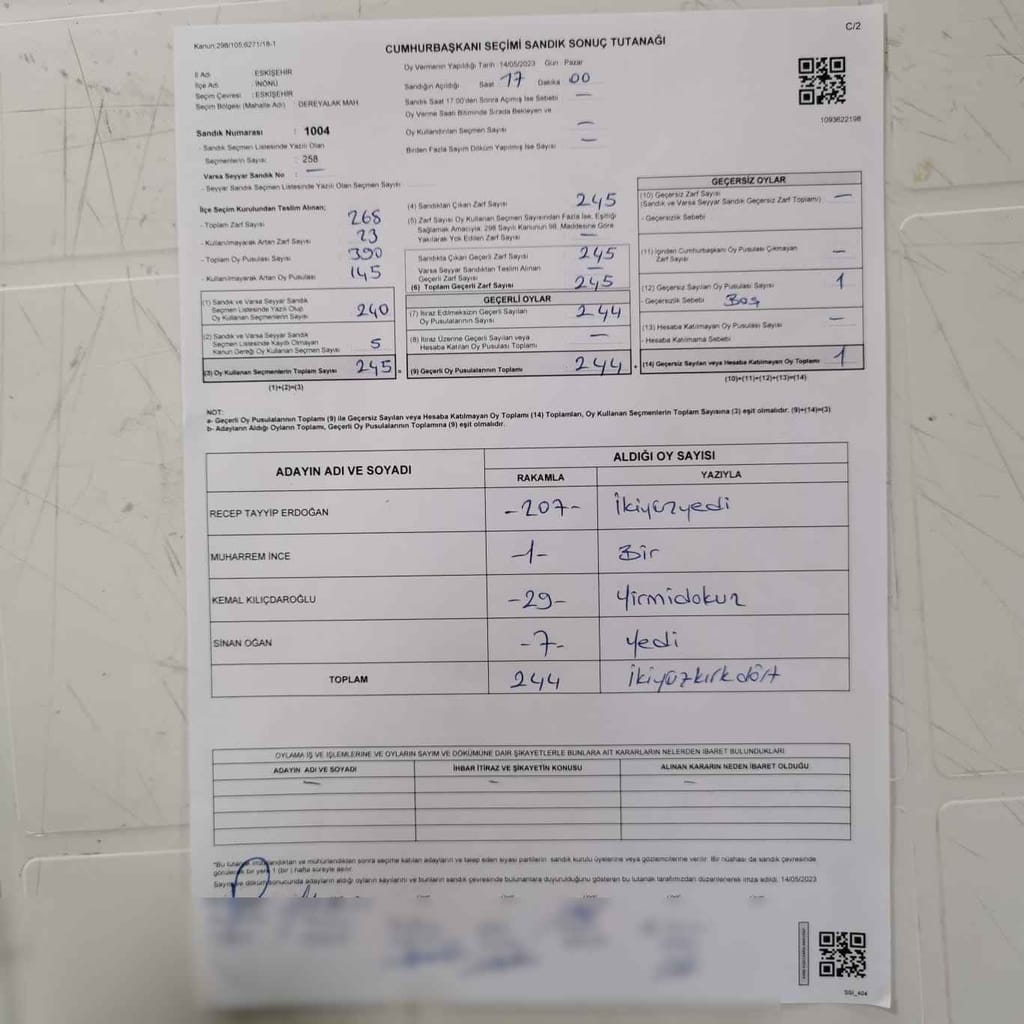 C/2
Kanun:298/105;6271/18-1
CUMHURBAŞKANI SEÇİMİ SANDIK SONUÇ TUTANAĞI
Oy Vermenin Yapıldığı Tarih :14/05/2023 Gün : Pazar
İl Adı : ESKİŞEHİR
İlçe Adı : İNÖNÜ
Seçim Çevresi : ESKİŞEHİR
Seçim Bölgesi (Mahalle Adı) : DEREYALAK MAH.
Sandığın Açıldığı Saat 17 Dakika 00
Sandık Saat 17:00'den Sonra Açılmış İse Sebebi —
Oy Verme Saati Bitiminde Sırada Bekleyen ve
Oy Kullandırılan Seçmen Sayısı —
Birden Fazla Sayım Döküm Yapılmış İse Sayısı —
1093622198
Sandık Numarası : 1004
- Sandık Seçmen Listesinde Yazılı Olan
Seçmenlerin Sayısı : 258
Varsa Seyyar Sandık No : —
- Seyyar Sandık Seçmen Listesinde Yazılı Olan Seçmen Sayısı
İlçe Seçim Kurulundan Teslim Alınan;
- Toplam Zarf Sayısı 268
- Kullanılmayarak Artan Zarf Sayısı 23
- Toplam Oy Pusulası Sayısı 390
- Kullanılmayarak Artan Oy Pusulası 145
(1) Sandık ve Varsa Seyyar Sandık
Seçmen Listesinde Yazılı Olup
Oy Kullanan Seçmenlerin Sayısı 240
(2) Sandık ve Varsa Seyyar Sandık
Seçmen Listesinde Kayıtlı Olmayan
Kanun Gereği Oy Kullanan Seçmen Sayısı 5
(3) Oy Kullanan Seçmenlerin Toplam Sayısı 245 =
(1)+(2)=(3)
(4) Sandıktan Çıkan Zarf Sayısı 245
(5) Zarf Sayısı Oy Kullanan Seçmen Sayısından Fazla İse, Eşitliği
Sağlamak Amacıyla, 298 Sayılı Kanunun 98. Maddesine Göre
Yakılarak Yok Edilen Zarf Sayısı —
Sandıkta Çıkan Geçerli Zarf Sayısı 245
Varsa Seyyar Sandıktan Teslim Alınan
Geçerli Zarf Sayısı —
(6) Toplam Geçerli Zarf Sayısı 245
GEÇERLİ OYLAR
(7) İtiraz Edilmeksizin Geçerli Sayılan
Oy Pusulalarının Sayısı 244
(8) İtiraz Üzerine Geçerli Sayılan veya
Hesaba Katılan Oy Pusulası Toplamı —
(9) Geçerli Oy Pusulalarının Toplamı 244 +
GEÇERSİZ OYLAR
(10) Geçersiz Zarf Sayısı —
(Sandık ve Varsa Seyyar Sandık Geçersiz Zarf Toplamı)
- Geçersizlik Sebebi
(11) İçinden Cumhurbaşkanı Oy Pusulası Çıkmayan
Zarf Sayısı —
(12) Geçersiz Sayılan Oy Pusulası Sayısı 1
- Geçersizlik Sebebi Boş
(13) Hesaba Katılmayan Oy Pusulası Sayısı —
- Hesaba Katılmama Sebebi
(14) Geçersiz Sayılan veya Hesaba Katılmayan Oy Toplamı 1
(10)+(11)+(12)+(13)=(14)
NOT:
a- Geçerli Oy Pusulalarının Toplamı (9) ile Geçersiz Sayılan veya Hesaba Katılmayan Oy Toplamı (14) Toplamları, Oy Kullanan Seçmenlerin Toplam Sayısına (3) eşit olmalıdır. (9)+(14)=(3)
b- Adayların Aldığı Oyların Toplamı, Geçerli Oy Pusulalarının Toplamına (9) eşit olmalıdır.
ADAYIN ADI VE SOYADI ALDIĞI OY SAYISI
RAKAMLA YAZIYLA
RECEP TAYYİP ERDOĞAN -207- İkiyüzyedi
MUHARREM İNCE -1- Bir
KEMAL KILIÇDAROĞLU -29- Yirmidokuz
SİNAN OĞAN -7- Yedi
TOPLAM 244 İkiyüzkırkdört
OYLAMA İŞ VE İŞLEMLERİNE VE OYLARIN SAYIM VE DÖKÜMÜNE DAİR ŞİKAYETLERLE BUNLARA AİT KARARLARIN NELERDEN İBARET BULUNDUKLARI
ADAYIN ADI VE SOYADI İHBAR İTİRAZ VE ŞİKAYETİN KONUSU ALINAN KARARIN NEDEN İBARET OLDUĞU
— — —
"Bu tutanak imzalandıktan ve mühürlendikten sonra seçime katılan adayların ve talep eden siyasi partilerin sandık kurulu üyelerine veya gözlemcilerine verilir. Bir nüshası da sandık çevresinde
görülecek bir yere 1 (bir) hafta süreyle asılır.
Sayım ve döküm sonucunda adayların aldığı oyların sayılarını ve bunların sandık çevresinde bulunanlara duyurulduğunu gösteren bu tutanak tarafımızdan düzenlenerek imza edildi. 14/05/2023
SSI_404